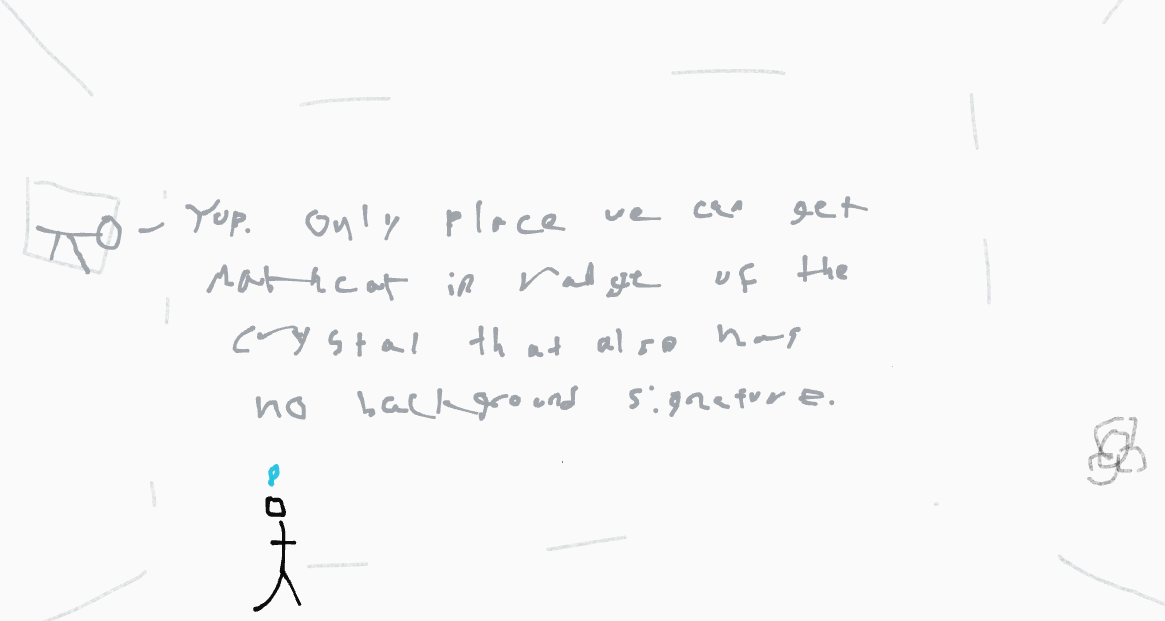 Yup. Only place we can get
Mathcat in range of the
crystal that also has
no background signature.